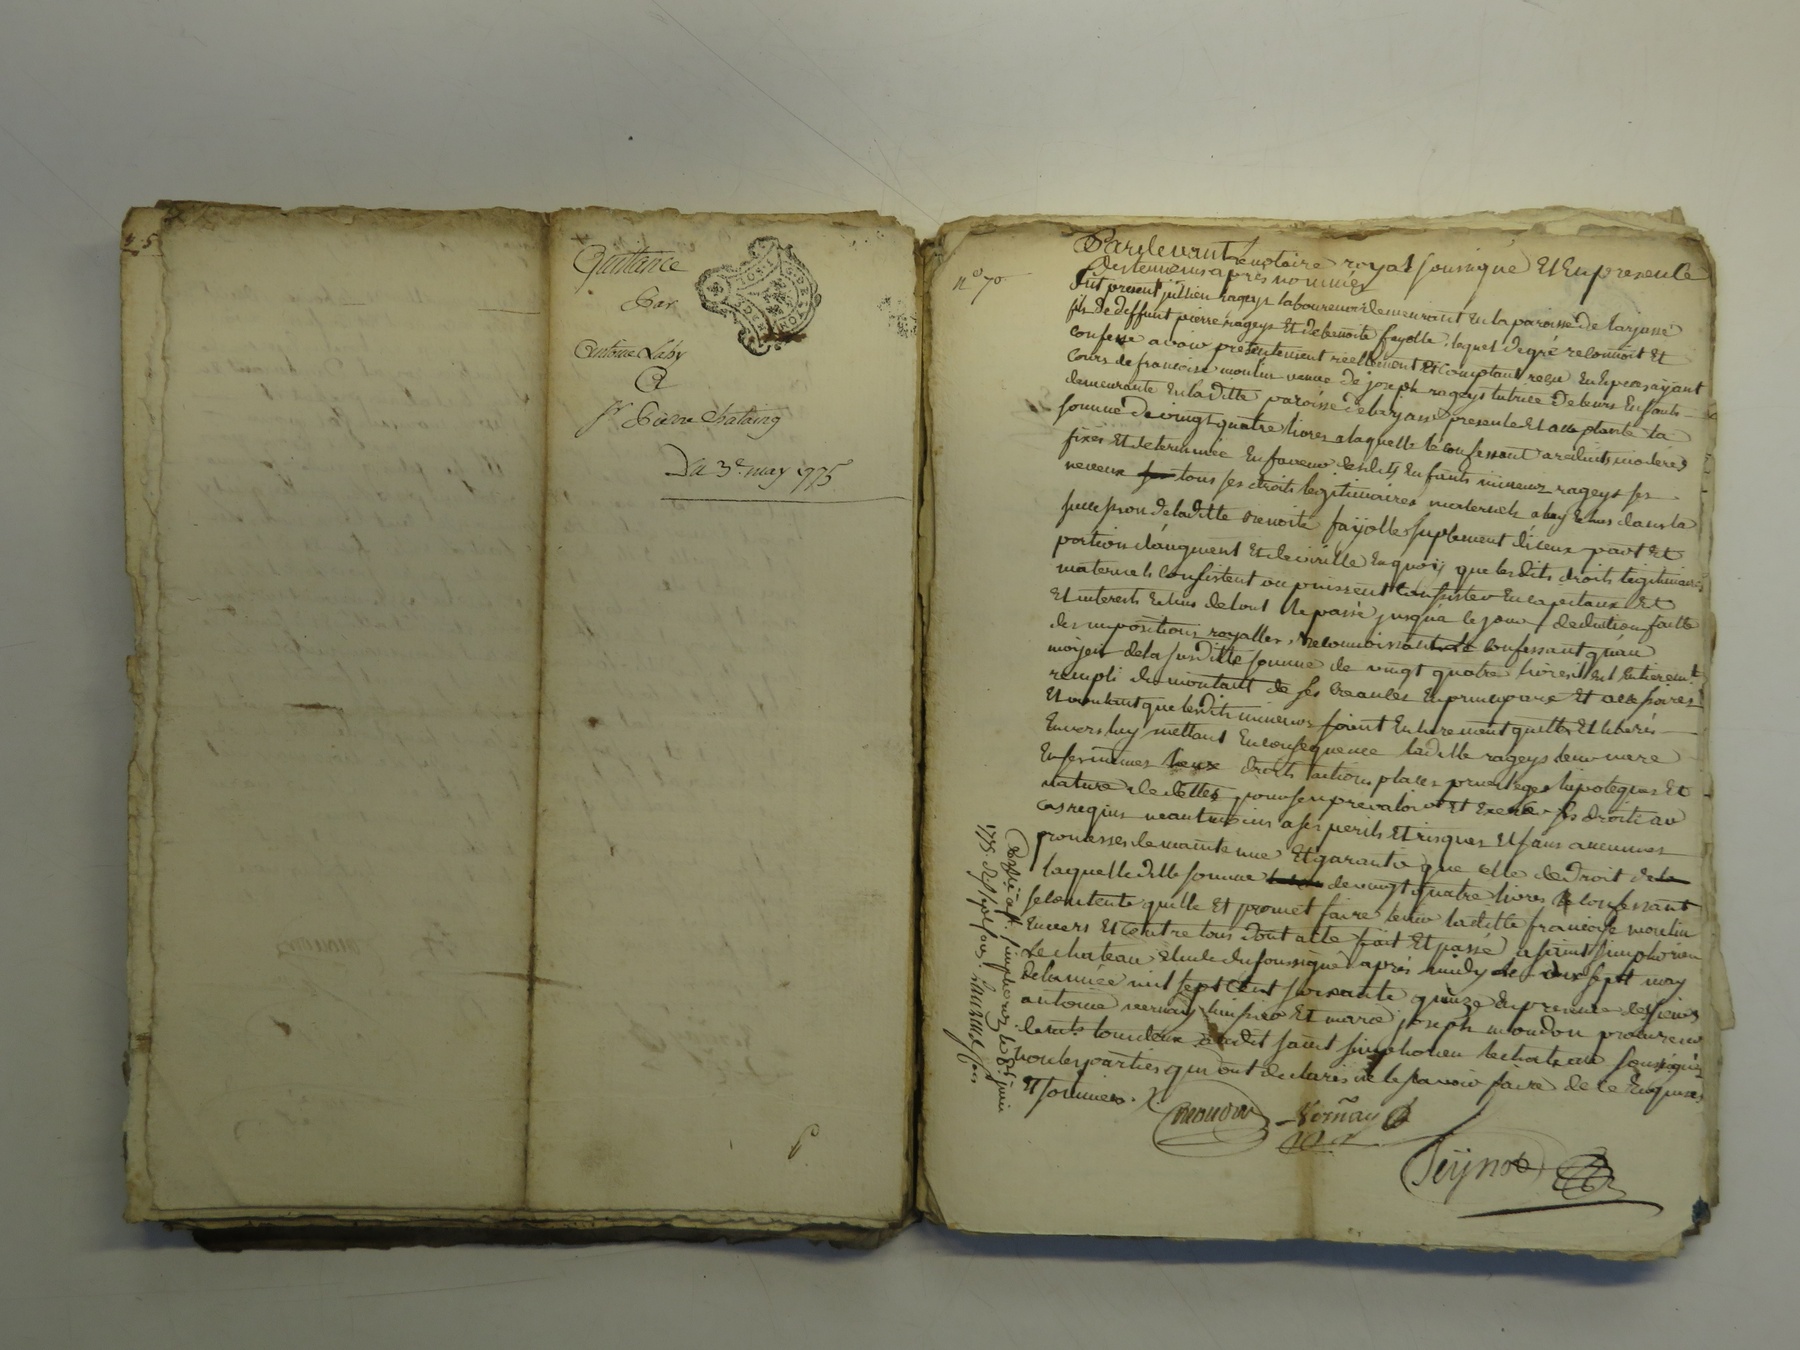 Quittance
Par
Antoine Laby
A
Sr Pierre Chataing
Du 3e may 1775
n° 70
Pardevant le notaire royal soussigné Et En presence
Des temoins après nommés
fut present jullien rageys laboureur demeurant En la paroisse de
fils De deffunt pierre rageys Et de benoite fayolle, lequel de gré reconnoit Et
confesse avoir presentement réellement Et comptant reçu En Especes ayant
Cours de françoise moulin veuve de joseph rageys tutrice de leurs Enfants
demeurante En la ditte paroisse de presente Et acceptante la
somme de vingt quatre livres a laquelle le confessant a reduits moderés
fixés Et determinée En faveur desdits Enfants mineurs rageys ses
neveux tous ses droits legitimaires maternels a luy Echus dans la
succession de laditte Benoite fayolle suplement diceux part Et
portion daugment Et de En quoy que lesdits droits legitimaires
maternels Consistent ou puissent Consister En capitaux Et
Et interets Echus de tout le passé jusqua ce jour, deduction faitte
des impositions royalles, reconnoissant Et confessant quau
moyen de la susditte somme de vingt quatre livres il Est Entierem.t
rempli du montant de ses Creances En principaux Et accessoires
Et voulant que lesdits mineurs soient Entierement quittes Et liberés
Envers luy mettant En consequence laditte rageys leur mere
En ses mêmes lieux droits actions places privileges hipoteques Et
nature de dettes pour s'en prevaloir Et Exercer ses droits au
cas requis neantmoins a ses perils Et risques Et sans aucunes
promesses de maintenue Et garantie que celle de droit de
laquelle ditte somme de vingt quatre livres le confessant
se contente quitte Et promet faire tenir laditte françoise moulin
Envers Et contre tous dont acte fait Et passé a saint simphorien
le chateau Etude du soussigné après midy le dix sept may
de lannée mil sept cent soixante quinze En presence des sieurs
antoine vernay Et marc joseph moudon procureur
tous deux audit saint simphorien le chateau soussignés
non les parties qui ont declarés ne le savoir faire de ce Enquises
Et sommées.
moudon Vernay
Peyno
Controllé a St. simphorien le 8e juin
1775. Reçu sept sous.